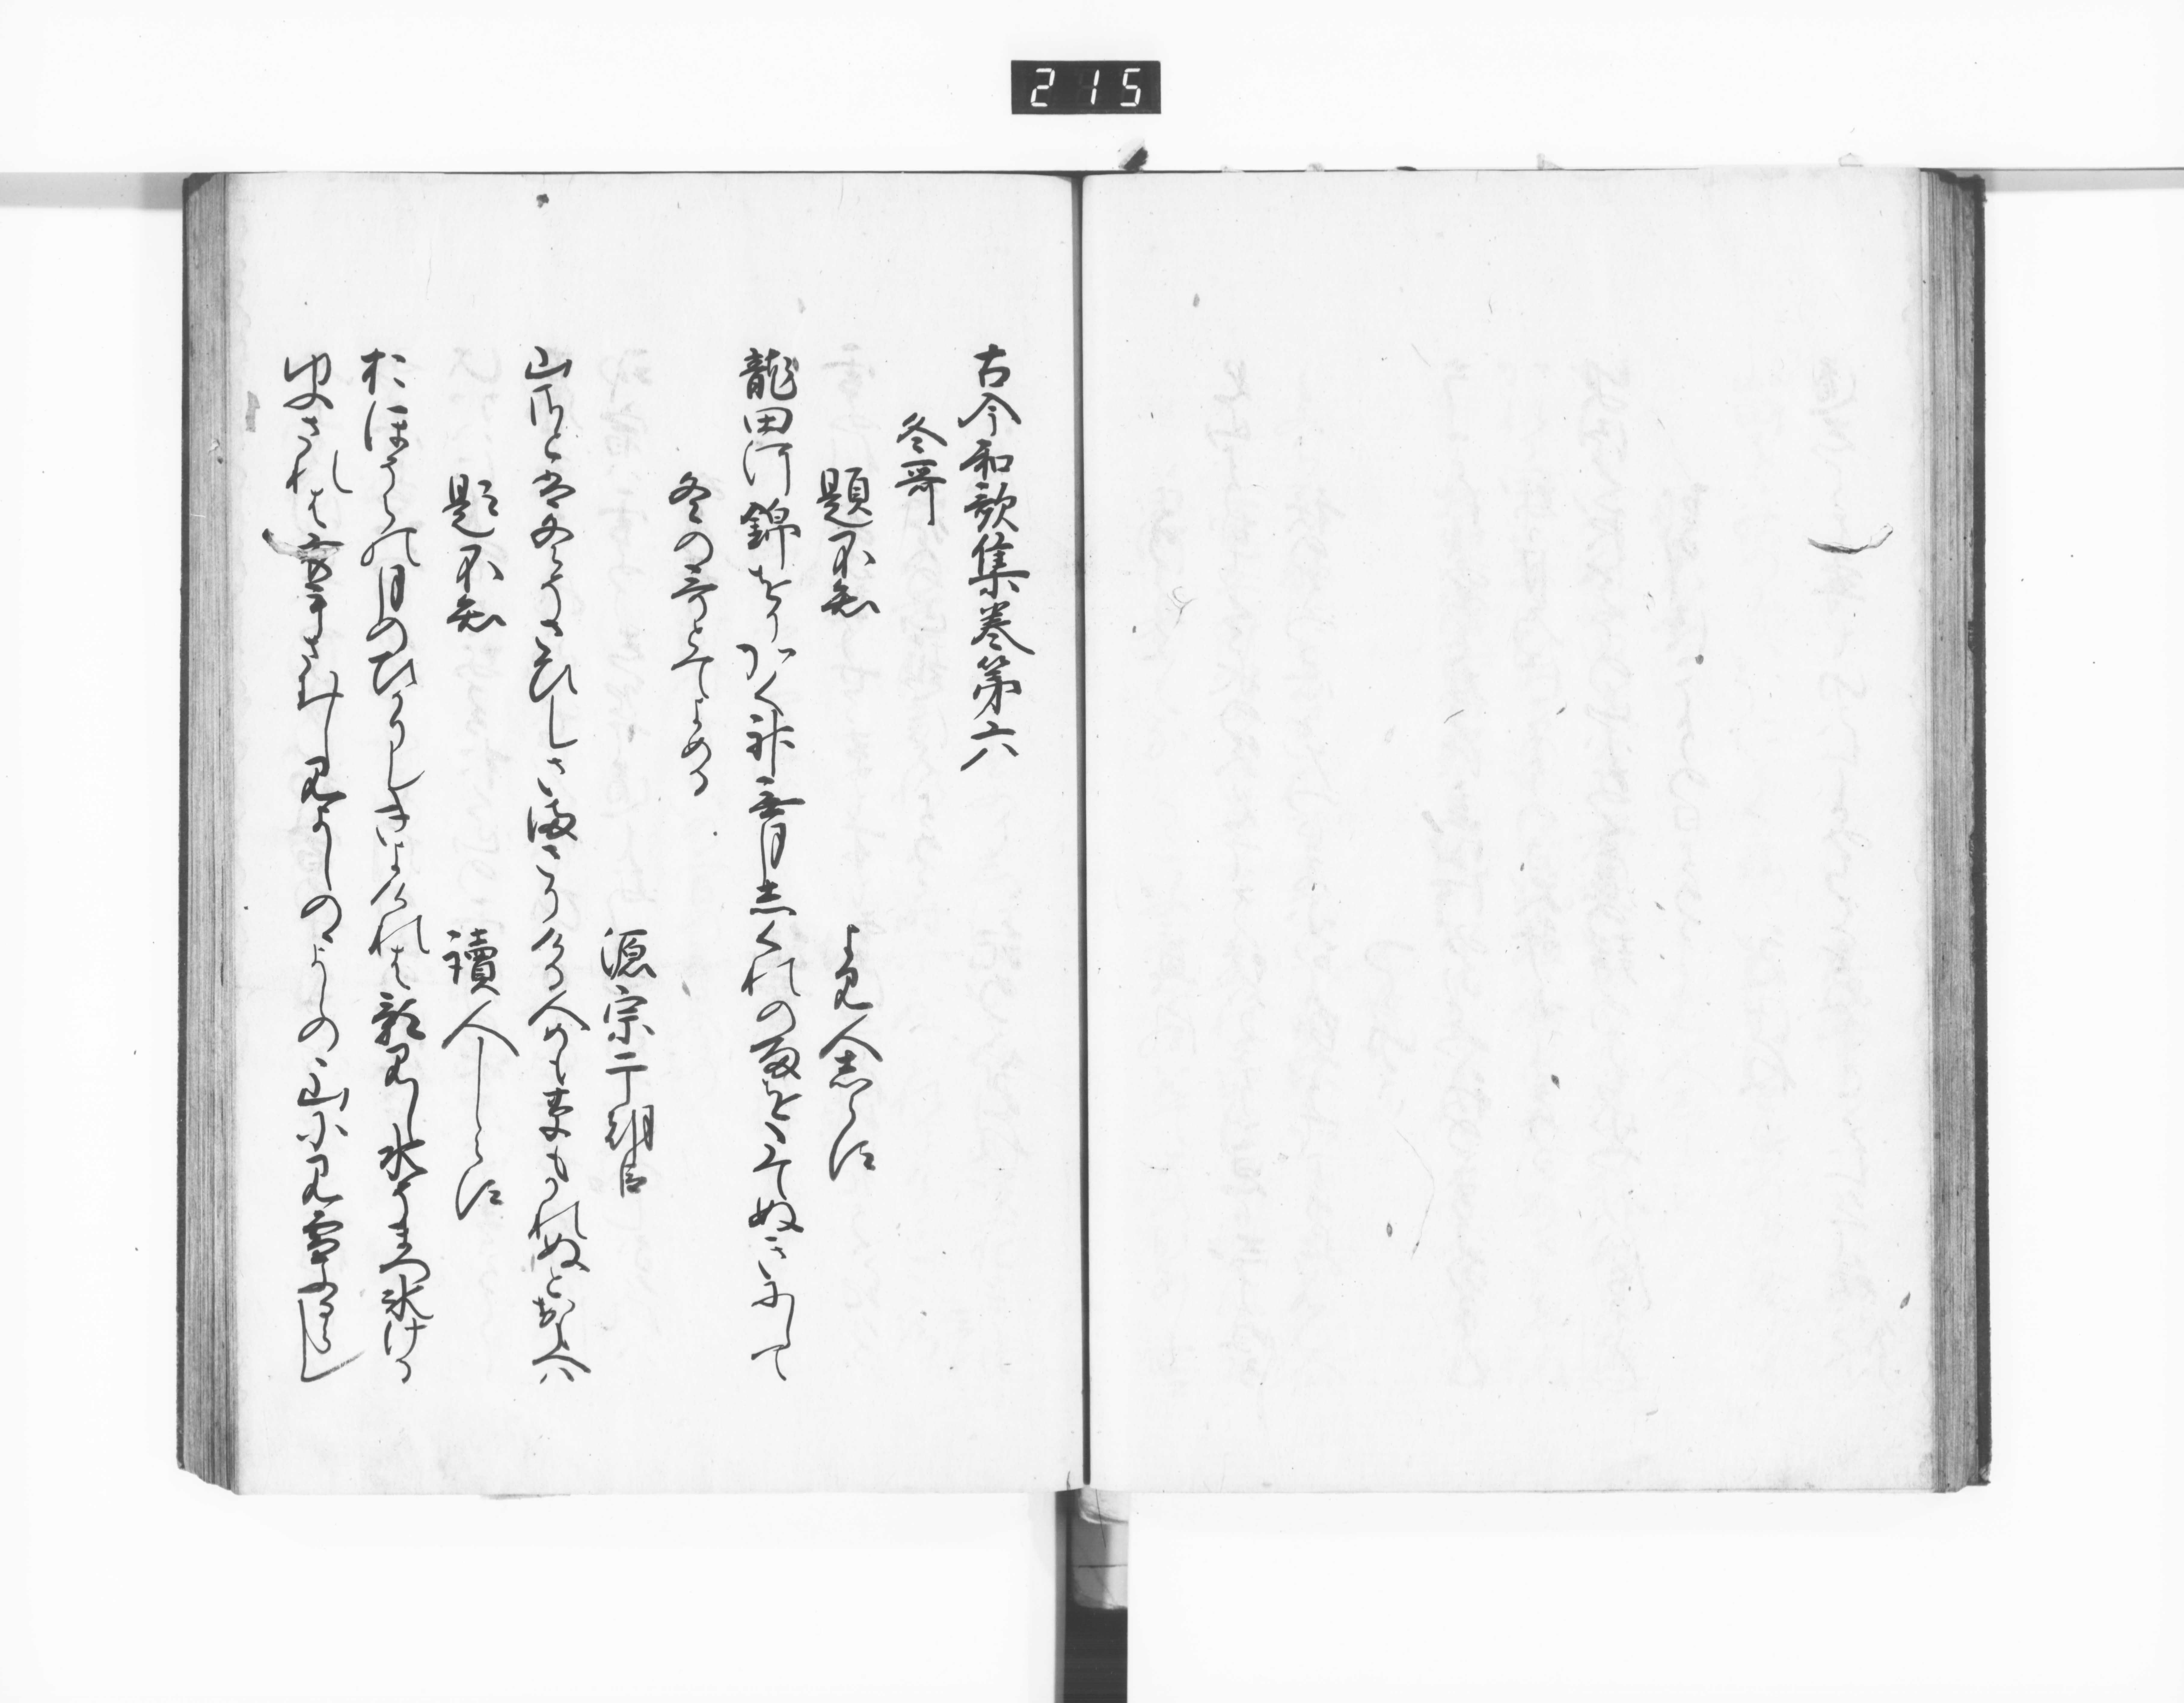 215
古今和歌集巻第六
冬哥
題不知
よみ人志らす
龍田河錦をりかく神無月志くれの雨をたてぬきにして
冬の哥とてよめる
源宗于朝臣
山里は冬そさひしさまさりける人めも草もかれぬと思へハ
題不知
讀人しらす
おほそらの月のひかりしきよけれは影見し水そまつ氷ける
ゆふされは衣手さむしみよしのゝよしのゝ山にみ雪ふるらし